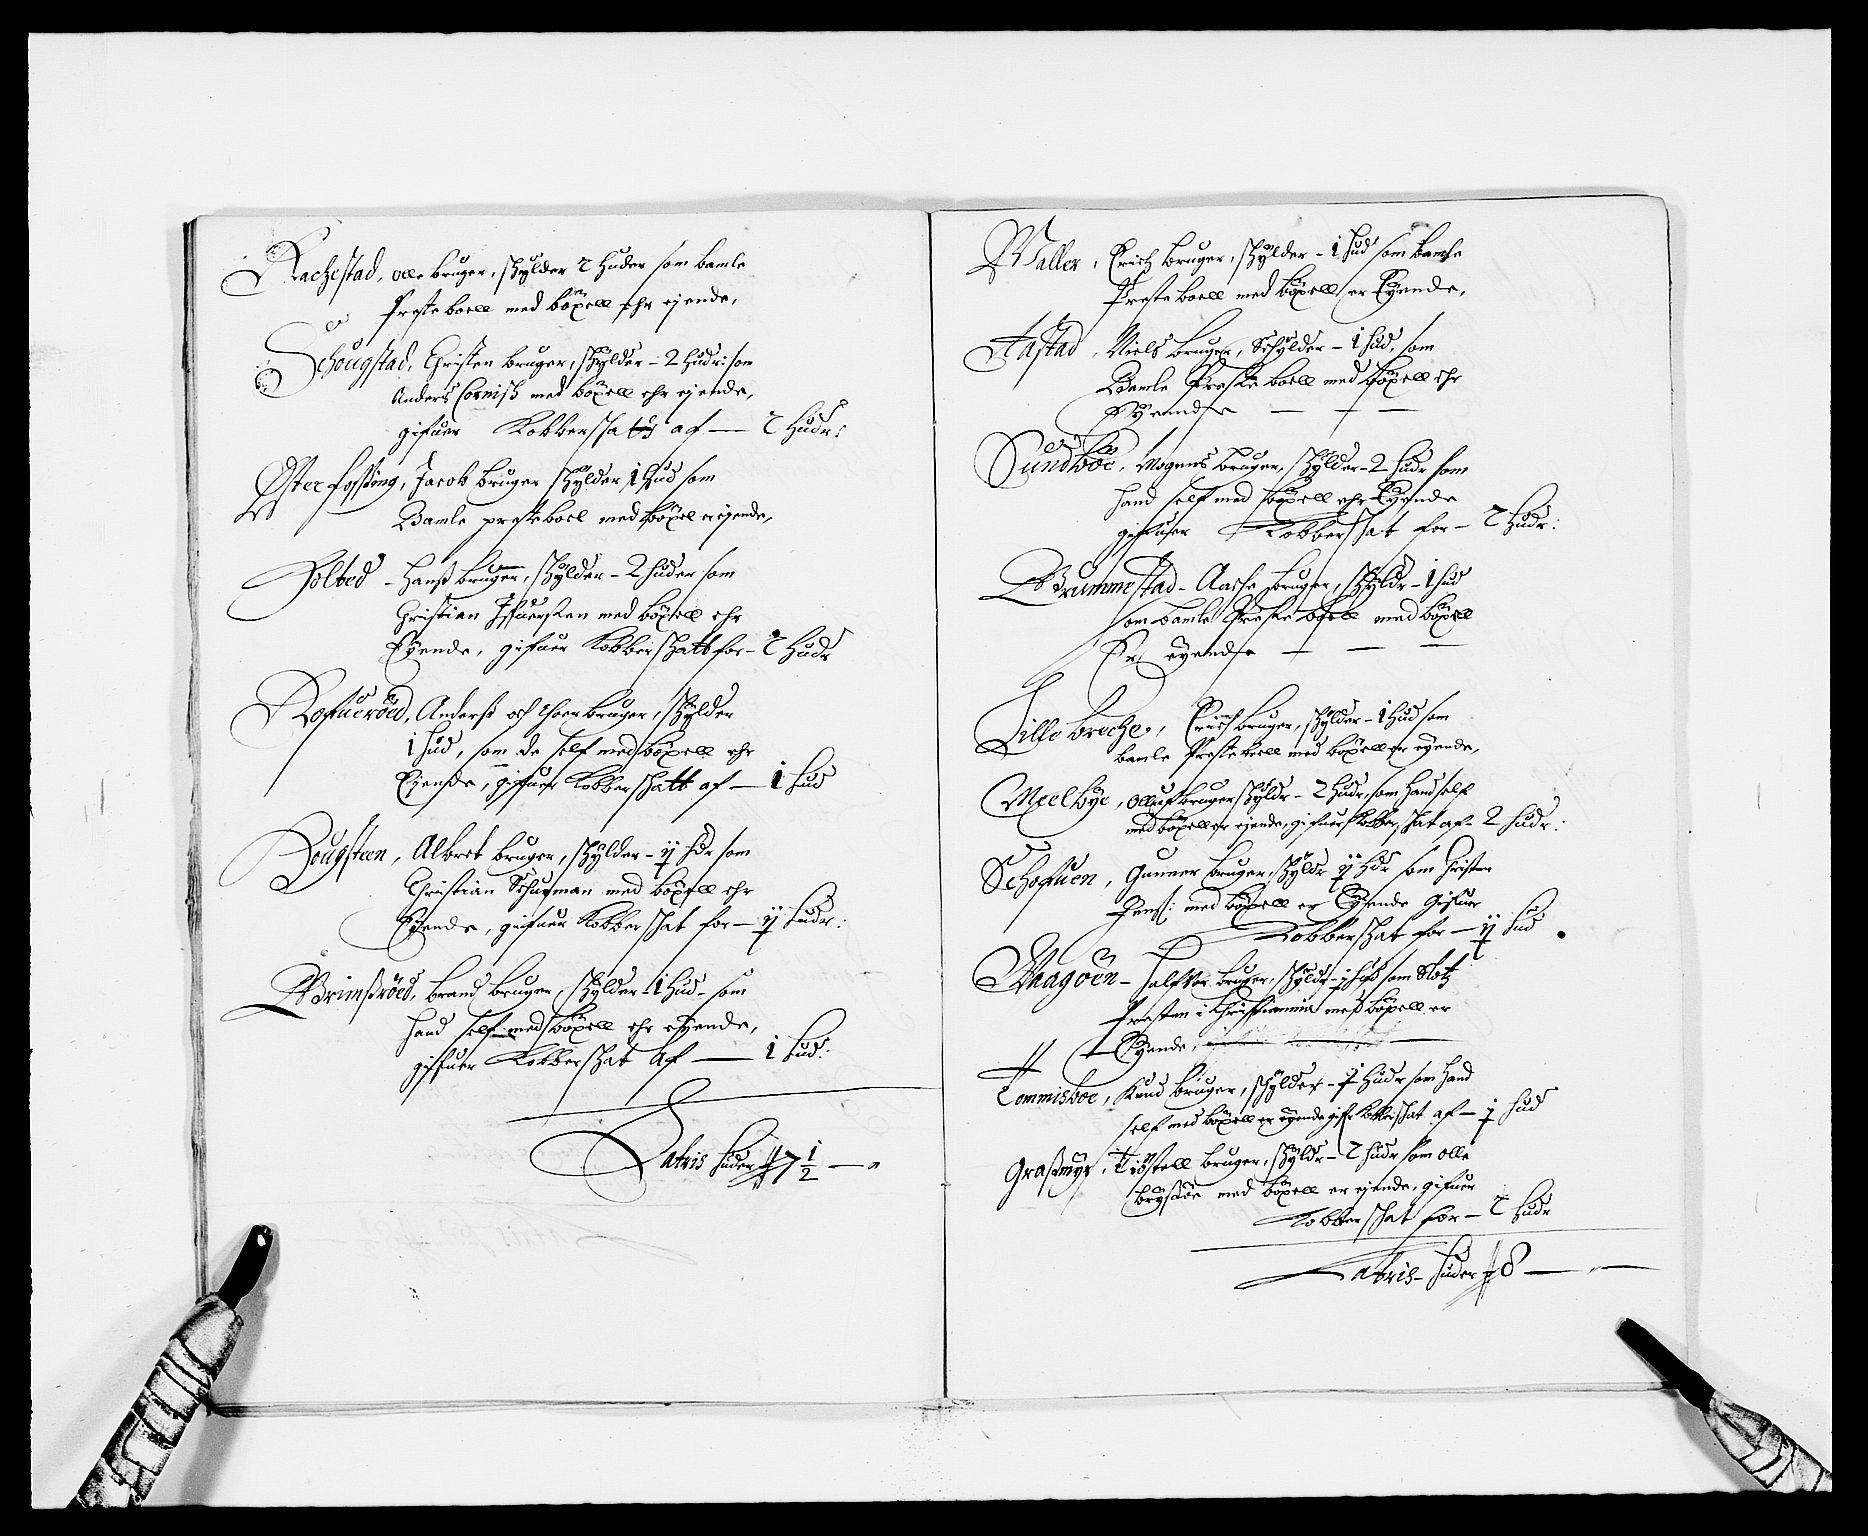 Rachestad, olle bruger, skylder 2 huder som bamle
Preste boell med böxell ehr ejende,
Schougstad, Christen bruger, skylder - 2 hudr: som
Anders Cornisß med böxell ehr ejende,
gifuer Kobberskatt af — 2 hudr:
Øster fosßing, Jacob bruger skylder 1 hud som
Bamle preste boel med böxel er ejende,
Holted - Hanß bruger, skylder - 2 huder som
Christian med böxell ehr
Eyende, gifuer Kobberskatt for - 2 hudr
Rofueröed, Anders och Thoer bruger, skylder
1 hud, som de self med böxell ehr
Ejende, gifuer Kobberskatt af — 1 hud
Rougsteen, Albret bruger, skylder - ÿ hdr som
Christian Schuman med böxell ehr
Eyende, gifuer Kobberskat for — ÿ hudr:
Grimßröed, brand bruger, skylder - 1 hud - som
hand self med böxell ehr eyende,
gifuer Kobberskat af — 1 hud:
Latris huder 17 1/2 —
Waller, Erich bruger, skylder - 1 hud som bamle
Preste boell med böxell er Eyende,
Aastad, Niels bruger, Schylder - 1 hud, som
Bamle Preste boell med böxell ehr
Eyendse — — —
Sundboe, Mogens bruger, skylder - 2 hudr som
hand self med böxell ehr Eyende
gifuer Kobberskat for - 2 hudr:
Brummestad - Aasse bruger, skyldr - 1 hud
som bamle Preste boell med böxell
Er eyendse — — —
Lille breche, Erich bruger, skylder - 1 hud som
bamle Preste boell med böxell er eyende,
Meelbye, Olluf bruger skyldr - 2 hudr, som hand self
med böxell er ejende, gifuer Kobberskat af - 2 hudr:
Schofuen, Gunner bruger, skyldr ÿ hdr som Christen
Jenß: med böxell er Eyende Gifuer
Kobberskat for — ÿ hud
Waagöen - halfvor bruger, skyldr - hud som Slotz
Presten i Christiania med böxell er
Eyende,
Tommisboe, Knud bruger, skylder - hudr som hand
self med böxell er eyende gifr kobberskat af — hud
Graßmÿr, Tiöstell bruger, skyldr - 2 hudr som olle
med böxell er ejende, gifuer
Kobberskat for — 2 hudr
Latris - huder 18 —